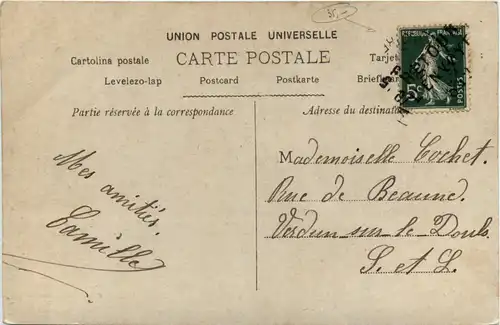 35,-
UNION POSTALE UNIVERSELLE
Cartolina postale CARTE POSTALE Tarjet
Levelezo-lap Postcard Postkarte Briefkar
RÉPUBLIQUE FRANÇAISE
5c POSTES
Partie réservée à la correspondance
Adresse du destinat
Mes amitiés.
Camille
Mademoiselle Cochet.
Rue de Beaune.
Verdun sur le Doubs
S. et L.